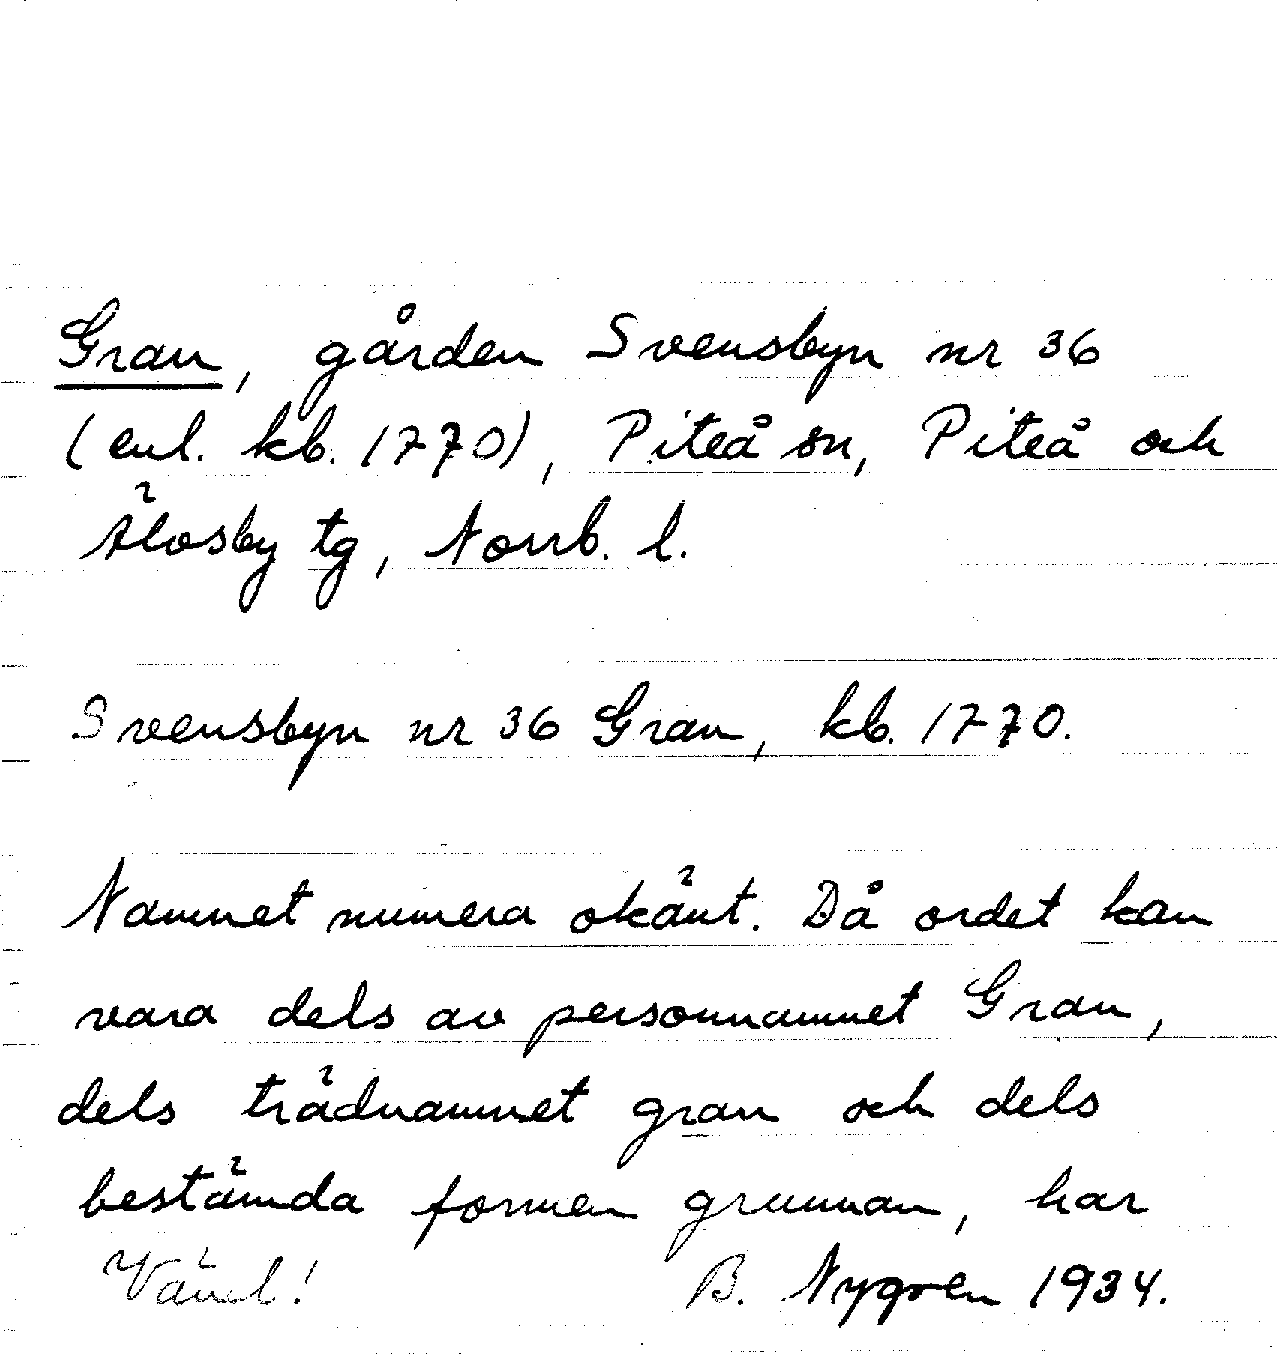 Gran, gården Svensbyn nr 36
(enl. kb. 1770), Piteå sn, Piteå och
Älvsby tg, Norrb. l.
Svensbyn nr 36 Gran, kb. 1770.
Namnet numera okänt. Då ordet kan
vara dels av personnamnet Gran,
dels trädnamnet gran och dels
bestämda formen grunnan, har
Vänd! B. Nygren 1934.